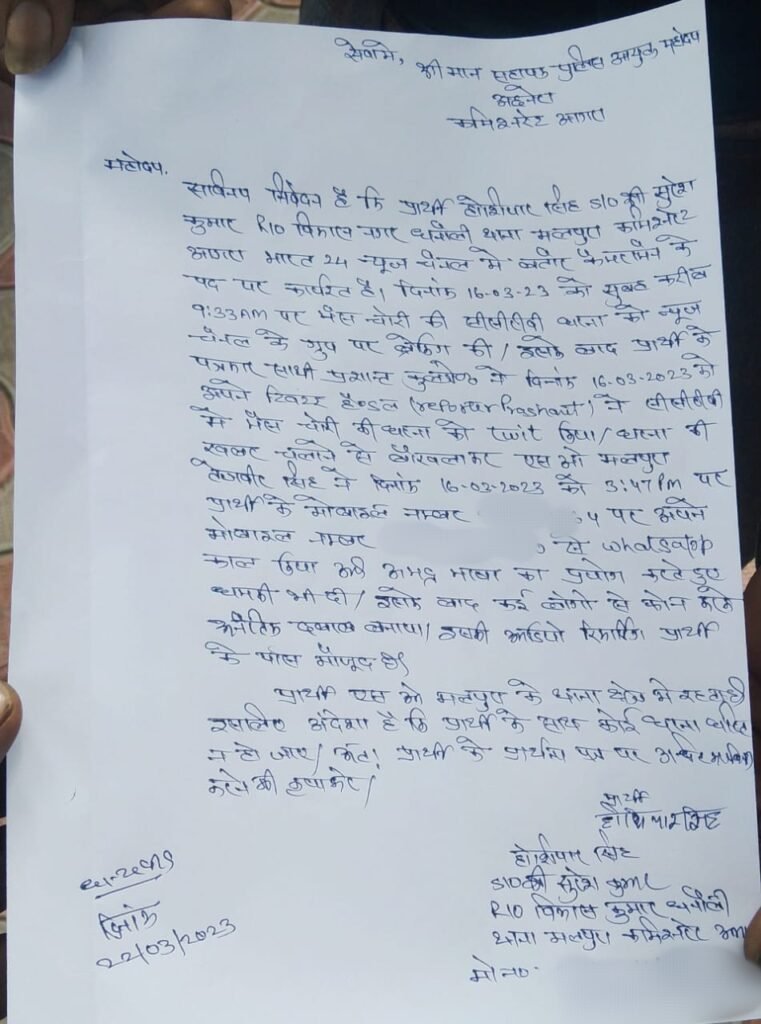 सेवामे,
श्री मान सहायक पुलिस आयुक्त महोदय
अछनेरा
कमिश्नरेट आगरा
महोदय.
सविनय निवेदन है कि प्रार्थी होशियार सिंह S/O श्री सुरेश
कुमार R/O विकास नगर धनौली थाना मलपुरा कमिश्नरेट
आगरा भारत 24 न्यूज चैनल मे बतौर कैमरामैन के
पद पर कार्यरत है। दिनांक 16-03-23 को सुबह करीब
9:33AM पर भैंस चोरी की सीसीटीवी घटना को न्यूज
चैनल के ग्रुप पर ब्रेकिंग की। इसके बाद प्रार्थी के
पत्रकार साथी प्रशान्त कुलश्रेष्ठ ने दिनांक 16-03-2023 को
अपने ट्विटर हैण्डल (reporterPrashant) ने सीसीटीवी
मे भैंस चोरी की घटना को twit किया। घटना की
खबर चलाने से बौखलाकर एस ओ मलपुरा
तेजवीर सिंह ने दिनांक 16-03-2023 को 3:47 PM पर
प्रार्थी के मोबाइल नम्बर 4 पर अपने
मोबाइल नम्बर से whatsapp
काल किया और अभद्र भाषा का प्रयोग करते हुए
धमकी भी दी। इसके बाद कई लोगो से फोन करके
अनैतिक दबाव बनाया। इसकी ऑडियो रिकार्डिंग प्रार्थी
के पास मौजूद है।
प्रार्थी एस ओ मलपुरा के थाना क्षेत्र मे रहता है
इसलिए अंदेशा है कि प्रार्थी के साथ कोई घटना घटित
न हो जाए। अतः प्रार्थी के प्रार्थना पत्र पर उचित
करने की कृपा करे।
प्रार्थी
होशियार सिंह
होशियार सिंह
S/O श्री सुरेश कुमार
R/O विकास कुमार धनौली
थाना मलपुरा कमिश्नरेट आगरा
मो न0-
धन्यवाद
दिनांक
22/03/2023